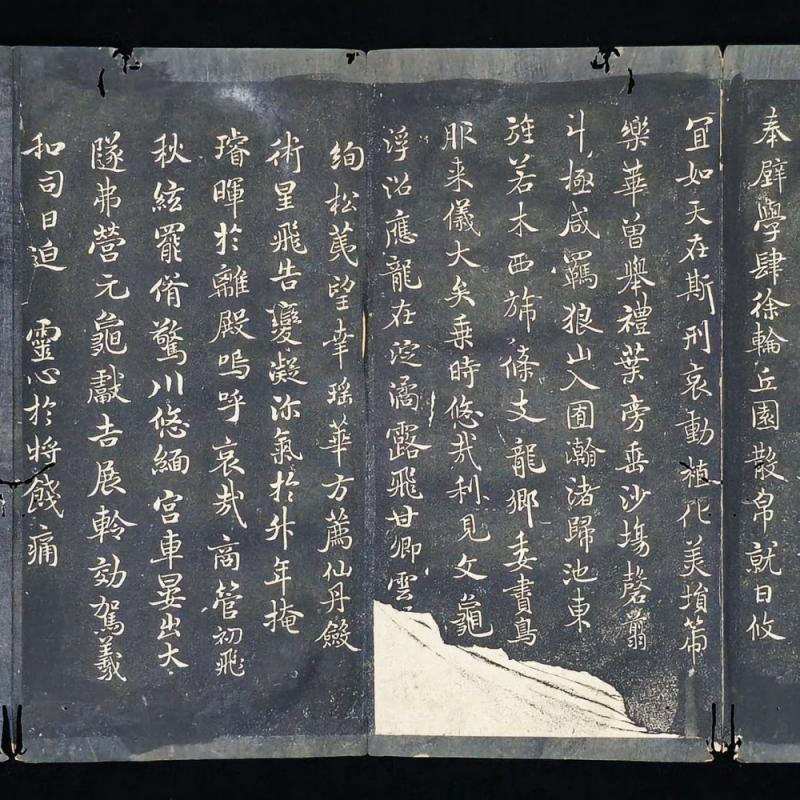 奉璧學肆徐輪丘園散帛就日攸
宜如天在斯刑哀動植化美塤箎
樂華曾舉禮葉旁垂沙場磬翦
斗極咸羈狼山入囿瀚渚歸池東
旌若木西旆條支龍鄉委賮鳥
服来儀大矣乗時悠哉利見文龜
浮沼應龍在淀潏露飛甘卿雲
絢松荑望幸瑶華方薦仙丹斂
術星飛告變凝沴氣於升年掩
璿暉於離殿嗚呼哀哉商管初飛
秋絃罷脩驚川悠緬宫車晏出大
隧弗營元龜獻吉展軨効駕羲
和司日迫靈心於将餞痛